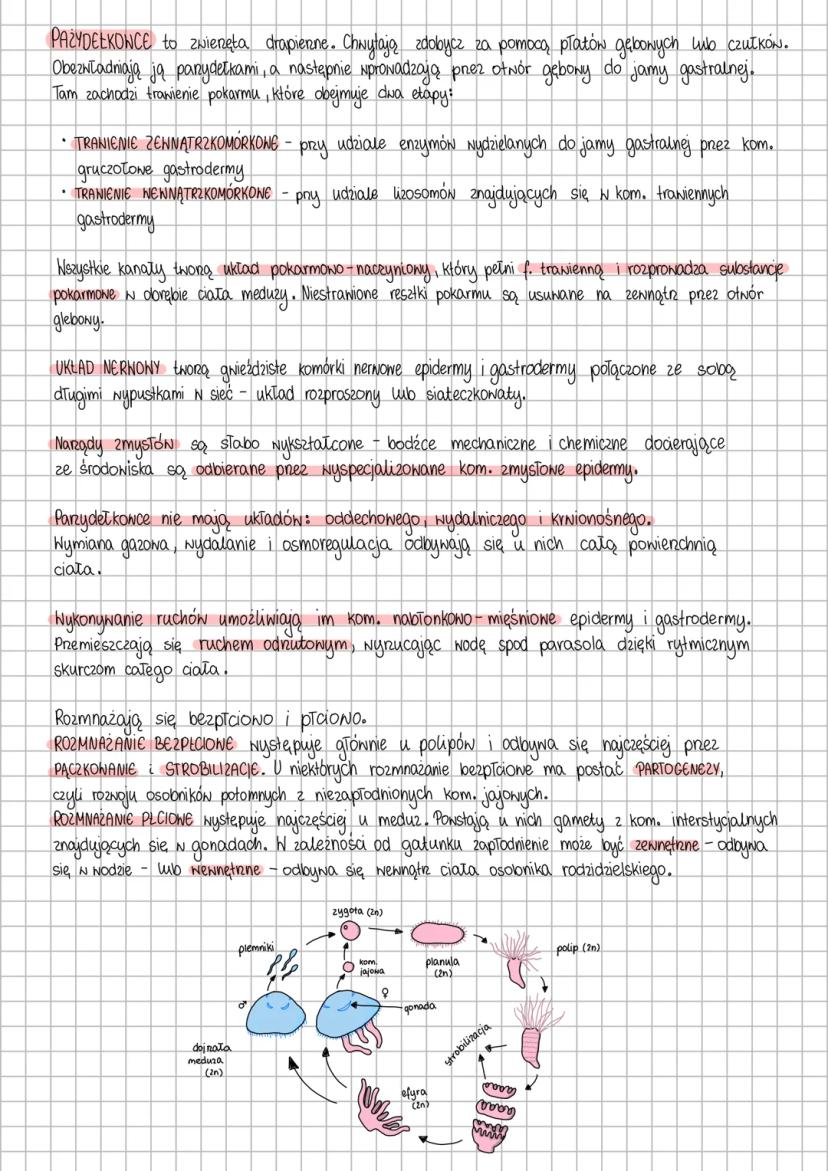 PAŻYDEŁKOWCE to zwierzęta drapieżne. Chwytają zdobycz za pomocą płatów gębowych lub czułków.
Obezwładniają ją parzydełkami, a następnie wprowadzają przez otwór gębowy do jamy gastralnej.
Tam zachodzi trawienie pokarmu, które obejmuje dwa etapy:
• TRAWIENIE ZEWNĄTRZKOMÓRKOWE - przy udziale enzymów wydzielanych do jamy gastralnej przez kom.
gruczołowe gastrodermy
• TRAWIENIE WEWNĄTRZKOMÓRKOWE - przy udziale lizosomów znajdujących się w kom. trawiennych
gastrodermy
Wszystkie kanały tworzą układ pokarmowo-naczyniowy, który pełni f. trawienną i rozprowadza substancje
pokarmowe w obrębie ciała meduzy. Niestrawione resztki pokarmu są usuwane na zewnątrz przez otwór
glebowy.
UKŁAD NERWOWY tworzą gwieździste komórki nerwowe epidermy i gastrodermy połączone ze sobą
długimi wypustkami w sieć - układ rozproszony lub siateczkowaty.
Narządy zmysłów są słabo wykształcone - bodźce mechaniczne i chemiczne docierające
ze środowiska są odbierane przez wyspecjalizowane kom. zmysłowe epidermy.
Parzydełkowce nie mają układów: oddechowego, wydalniczego i krwionośnego.
Wymiana gazowa, wydalanie i osmoregulacja odbywają się u nich całą powierzchnią
ciała.
Wykonywanie ruchów umożliwiają im kom. nabłonkowo-mięśniowe epidermy i gastrodermy.
Przemieszczają się ruchem odrzutowym, wyrzucając wodę spod parasola dzięki rytmicznym
skurczom całego ciała.
Rozmnażają się bezpłciowo i płciowo.
ROZMNAŻANIE BEZPŁCIOWE występuje głównie u polipów i odbywa się najczęściej przez
PĄCZKOWANIE i STROBILIZACJĘ. U niektórych rozmnażanie bezpłciowe ma postać PARTOGENEZY,
czyli rozwoju osobników potomnych z niezapłodnionych kom. jajowych.
ROZMNAŻANIE PŁCIOWE występuje najczęściej u meduz. Powstają u nich gamety z kom. interstycjalnych
znajdujących się w gonadach. W zależności od gatunku zapłodnienie może być zewnętrzne - odbywa
się w wodzie - lub wewnętrzne - odbywa się wewnątrz ciała osobnika rodzidzielskiego.
zygota (2n)
plemniki
kom.
jajowa
planula
(2n)
polip (2n)
♂
♀
gonada
strobilizacja
dojrzała
meduza
(2n)
efyra
(2n)